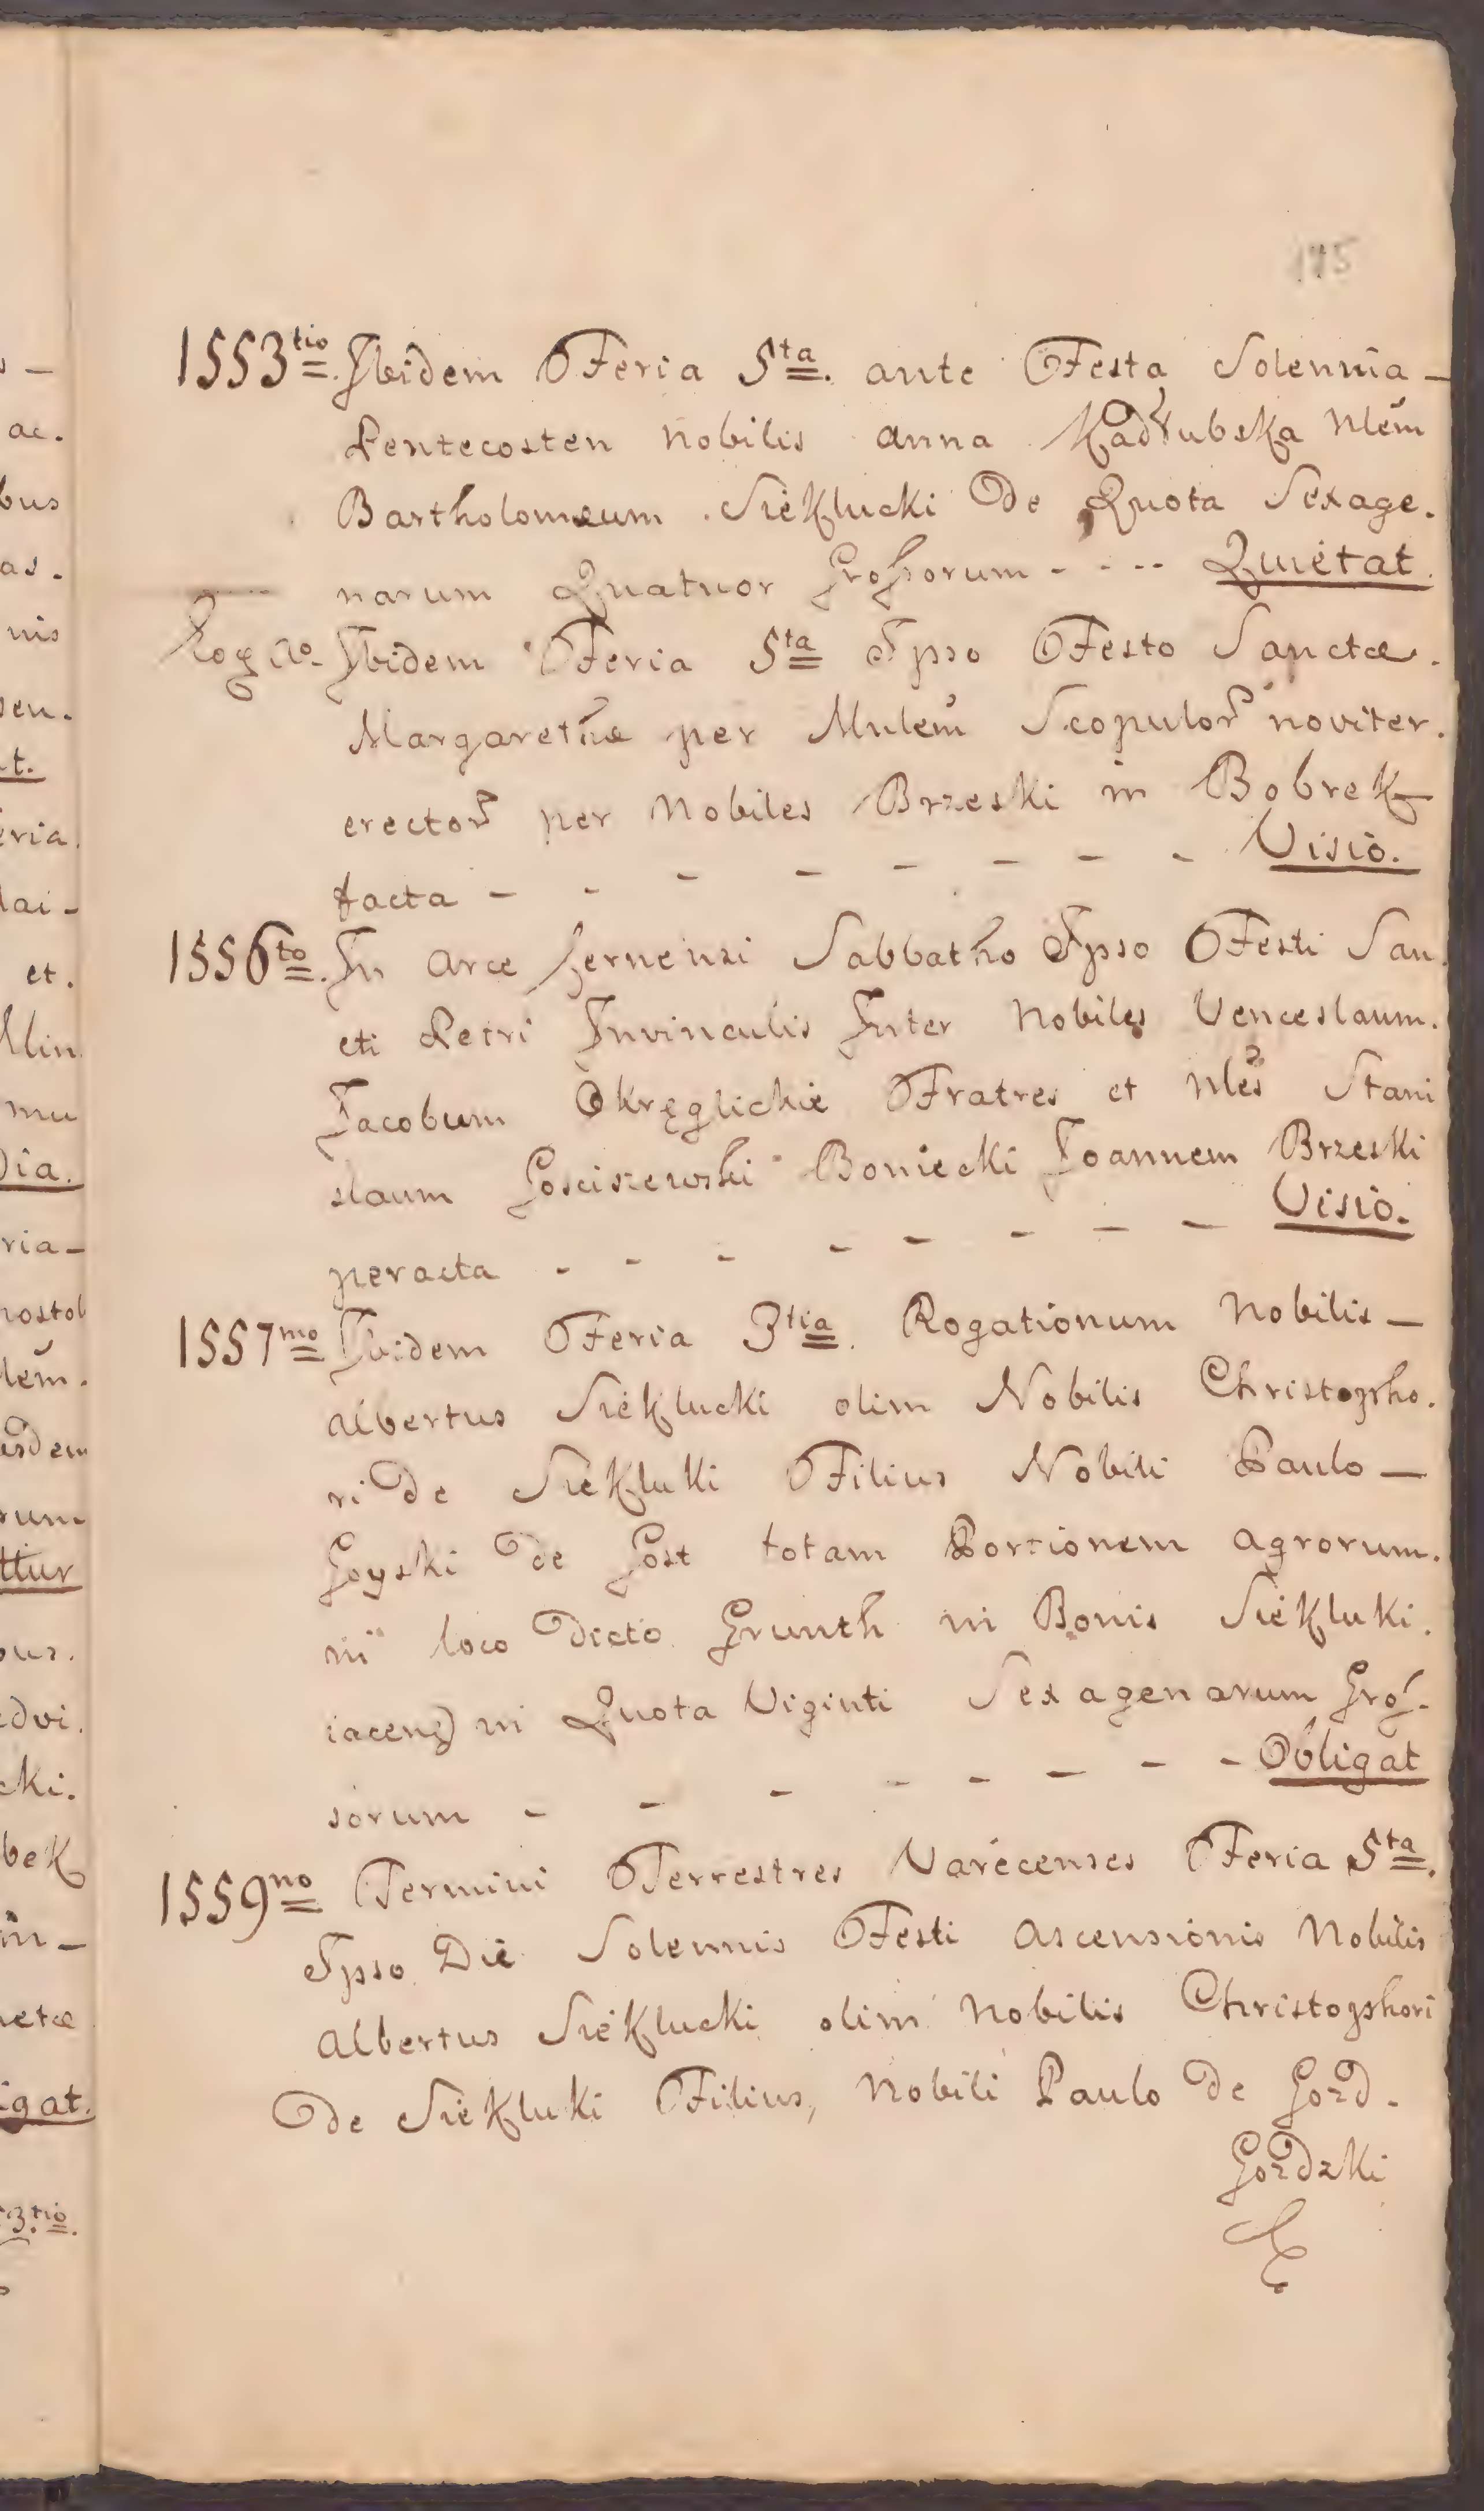 175
1553tio. Ibidem Feria 5ta. ante Festa Solennia –
Pentecosten Nobilis Anna Kadłubska Nlem
Bartholomæum Siekłucki de Quota Sexage.
narum Quatuor Grossorum - - - - Quietat.
Ibidem Feria 5ta Ipso Festo Sanctæ.
Margarethæ per Mnlem Scopulor noviter.
erector per Nobiles Brzeski in Bobrek
facta - - - - - - - - Visio.
1556to. In Arce Zernensi Sabbatho Ipso Festi San.
cti Petri Invinculis Inter Nobiles Venceslaum.
Jacobum Okręglickie Fratres et Nles Stani
slaum Gosciszewski Boniecki Joannem Brzeski
peracta - - - - - - - - Visio.
1557mo Ibidem Feria 3tia. Rogationum Nobilis –
Albertus Siekłucki olim Nobilis Christopho.
ri de Siekłuki Filius Nobili Paulo –
Goyski de Gost totam Portionem Agrorum.
in loco dicto Grunth in Bonis Siekłuki.
iacen in Quota Viginti Sexagenarum Gros.
sorum - - - - - - - - Obligat
1559no Termini Terrestres Varecenses Feria 5ta.
Ipso Die Solennis Festi Ascensionis Nobilis
Albertus Siekłucki olim Nobilis Christophori
de Siekłuki Filius, Nobili Paulo de Gozd.
Gozdzki